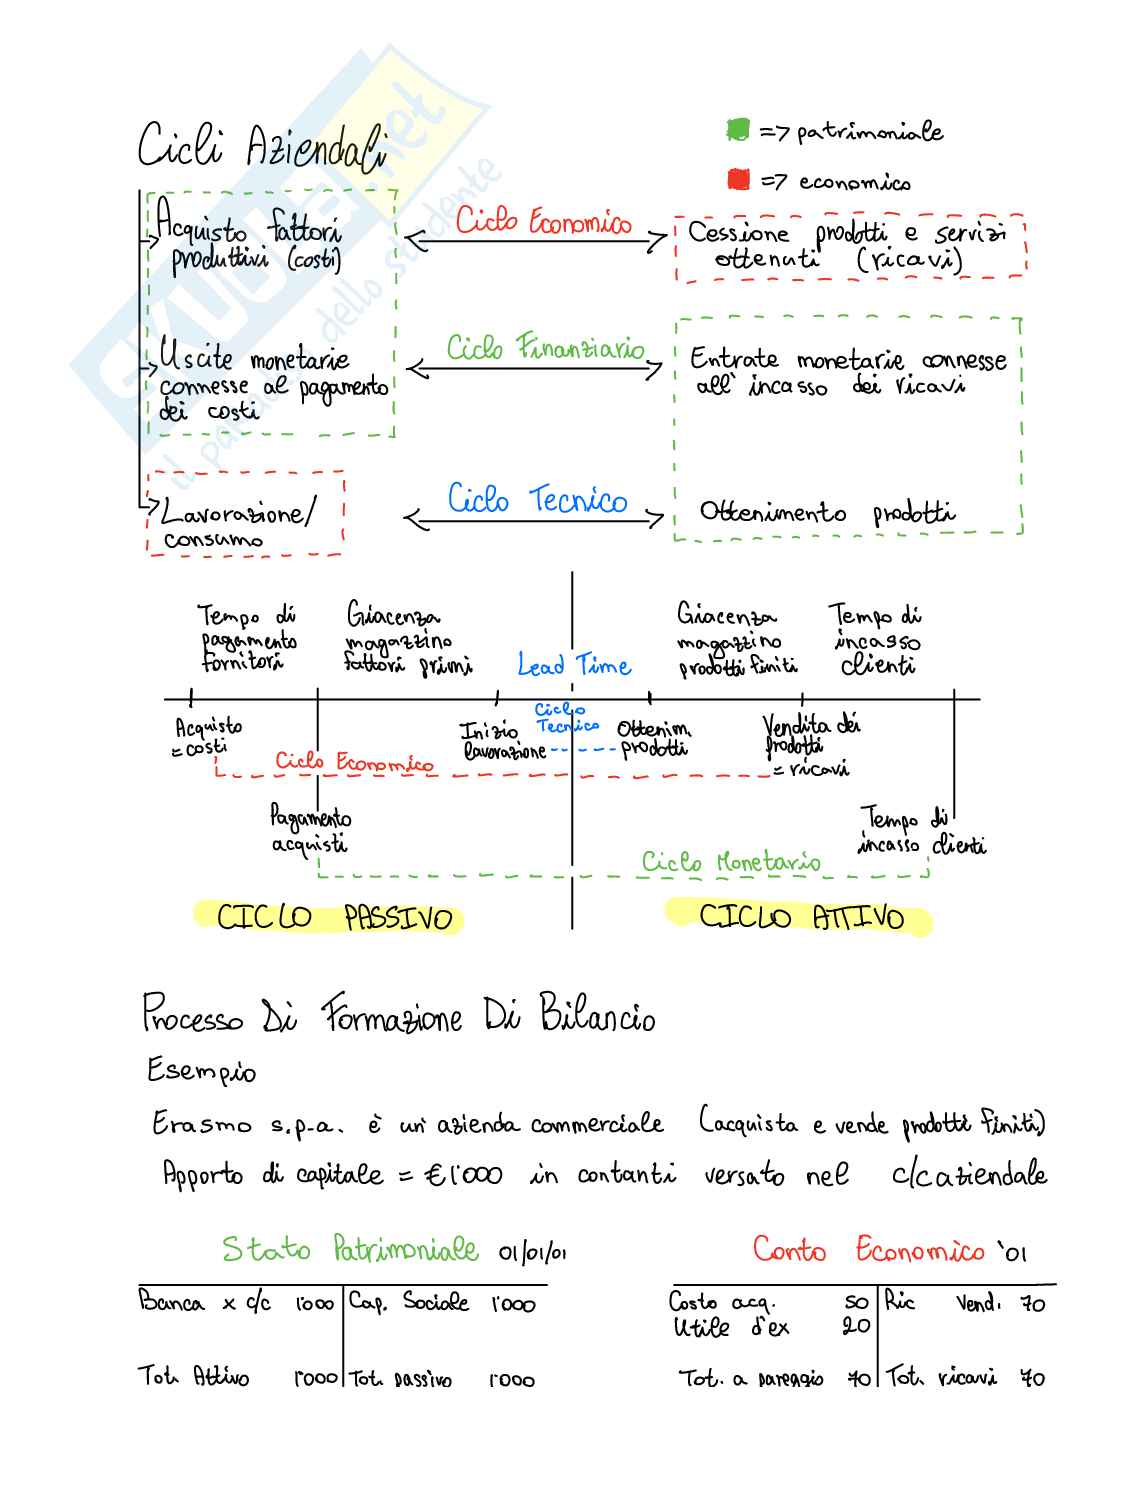 Cicli Aziendali
=> patrimoniale
=> economico
Acquisto fattori
produttivi (costi)
Ciclo Economico
Cessione prodotti e servizi
ottenuti (ricavi)
Uscite monetarie
connesse al pagamento
dei costi
Ciclo Finanziario
Entrate monetarie connesse
all'incasso dei ricavi
Lavorazione/
consumo
Ciclo Tecnico
Ottenimento prodotti
Tempo di
pagamento
fornitori
Giacenza
magazzino
fattori primi
Lead Time
Giacenza
magazzino
prodotti finiti
Tempo di
incasso
clienti
Acquisto
= costi
Inizio
lavorazione
Ciclo
Tecnico
Ottenim.
prodotti
Vendita dei
prodotti
= ricavi
Ciclo Economico
Pagamento
acquisti
Tempo di
incasso clienti
Ciclo Monetario
CICLO PASSIVO
CICLO ATTIVO
Processo Di Formazione Di Bilancio
Esempio
Erasmo s.p.a. è un'azienda commerciale (acquista e vende prodotti finiti)
Apporto di capitale = € 1'000 in contanti versato nel c/c aziendale
Stato Patrimoniale 01/01/01
Conto Economico '01
Banca x c/c 1'000 Cap. Sociale 1'000
Costo acq. 50 Ric Vend. 70
Utile d'ex 20
Tot. Attivo 1'000 Tot. passivo 1'000
Tot. a pareggio 70 Tot. ricavi 70
SKUOLA.net
il paradiso dello studente